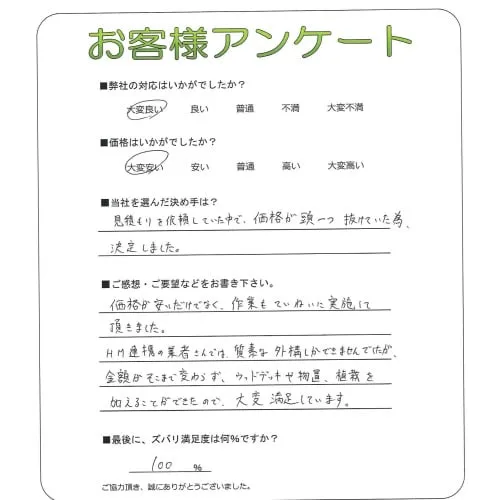 お客様アンケート
■弊社の対応はいかがでしたか？
大変良い 良い 普通 不満 大変不満
■価格はいかがでしたか？
大変安い 安い 普通 高い 大変高い
■当社を選んだ決め手は？
見積もりを依頼していた中で、価格が頭一つ抜けていた為、
決定しました。
■ご感想・ご要望などをお書き下さい。
価格が安いだけでなく、作業もていねいに実施して
頂きました。
HM連携の業者さんでは、質素な外構しかできませんでしたが、
金額がそこまで変わらず、ウッドデッキや物置、植栽を
加えることができたので、大変満足しています。
■最後に、ズバリ満足度は何％ですか？
100 %
ご協力頂き、誠にありがとうございました。